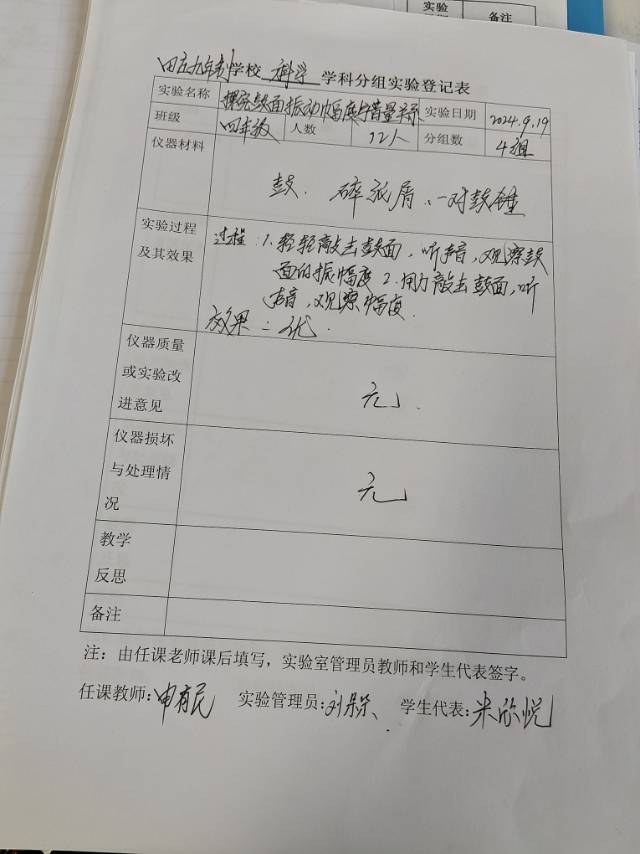 实验
备注
田五九年制学校 科学 学科分组实验登记表
实验名称 探究鼓面振动幅度与音量关系 实验日期 2024.9.19
班级 四年级 人数 12人 分组数 4组
仪器材料 鼓、碎纸屑、一对鼓锤
实验过程 过程:1.轻轻敲击鼓面,听声音,观察鼓
及其效果 面的振幅度 2.用力敲击鼓面,听
声音,观察幅度.
效果:优.
仪器质量
或实验改 无.
进意见
仪器损坏
与处理情 无
况
教学
反思
备注
注:由任课老师课后填写,实验室管理员教师和学生代表签字。
任课教师:申有民 实验管理员:刘 学生代表:米欣悦